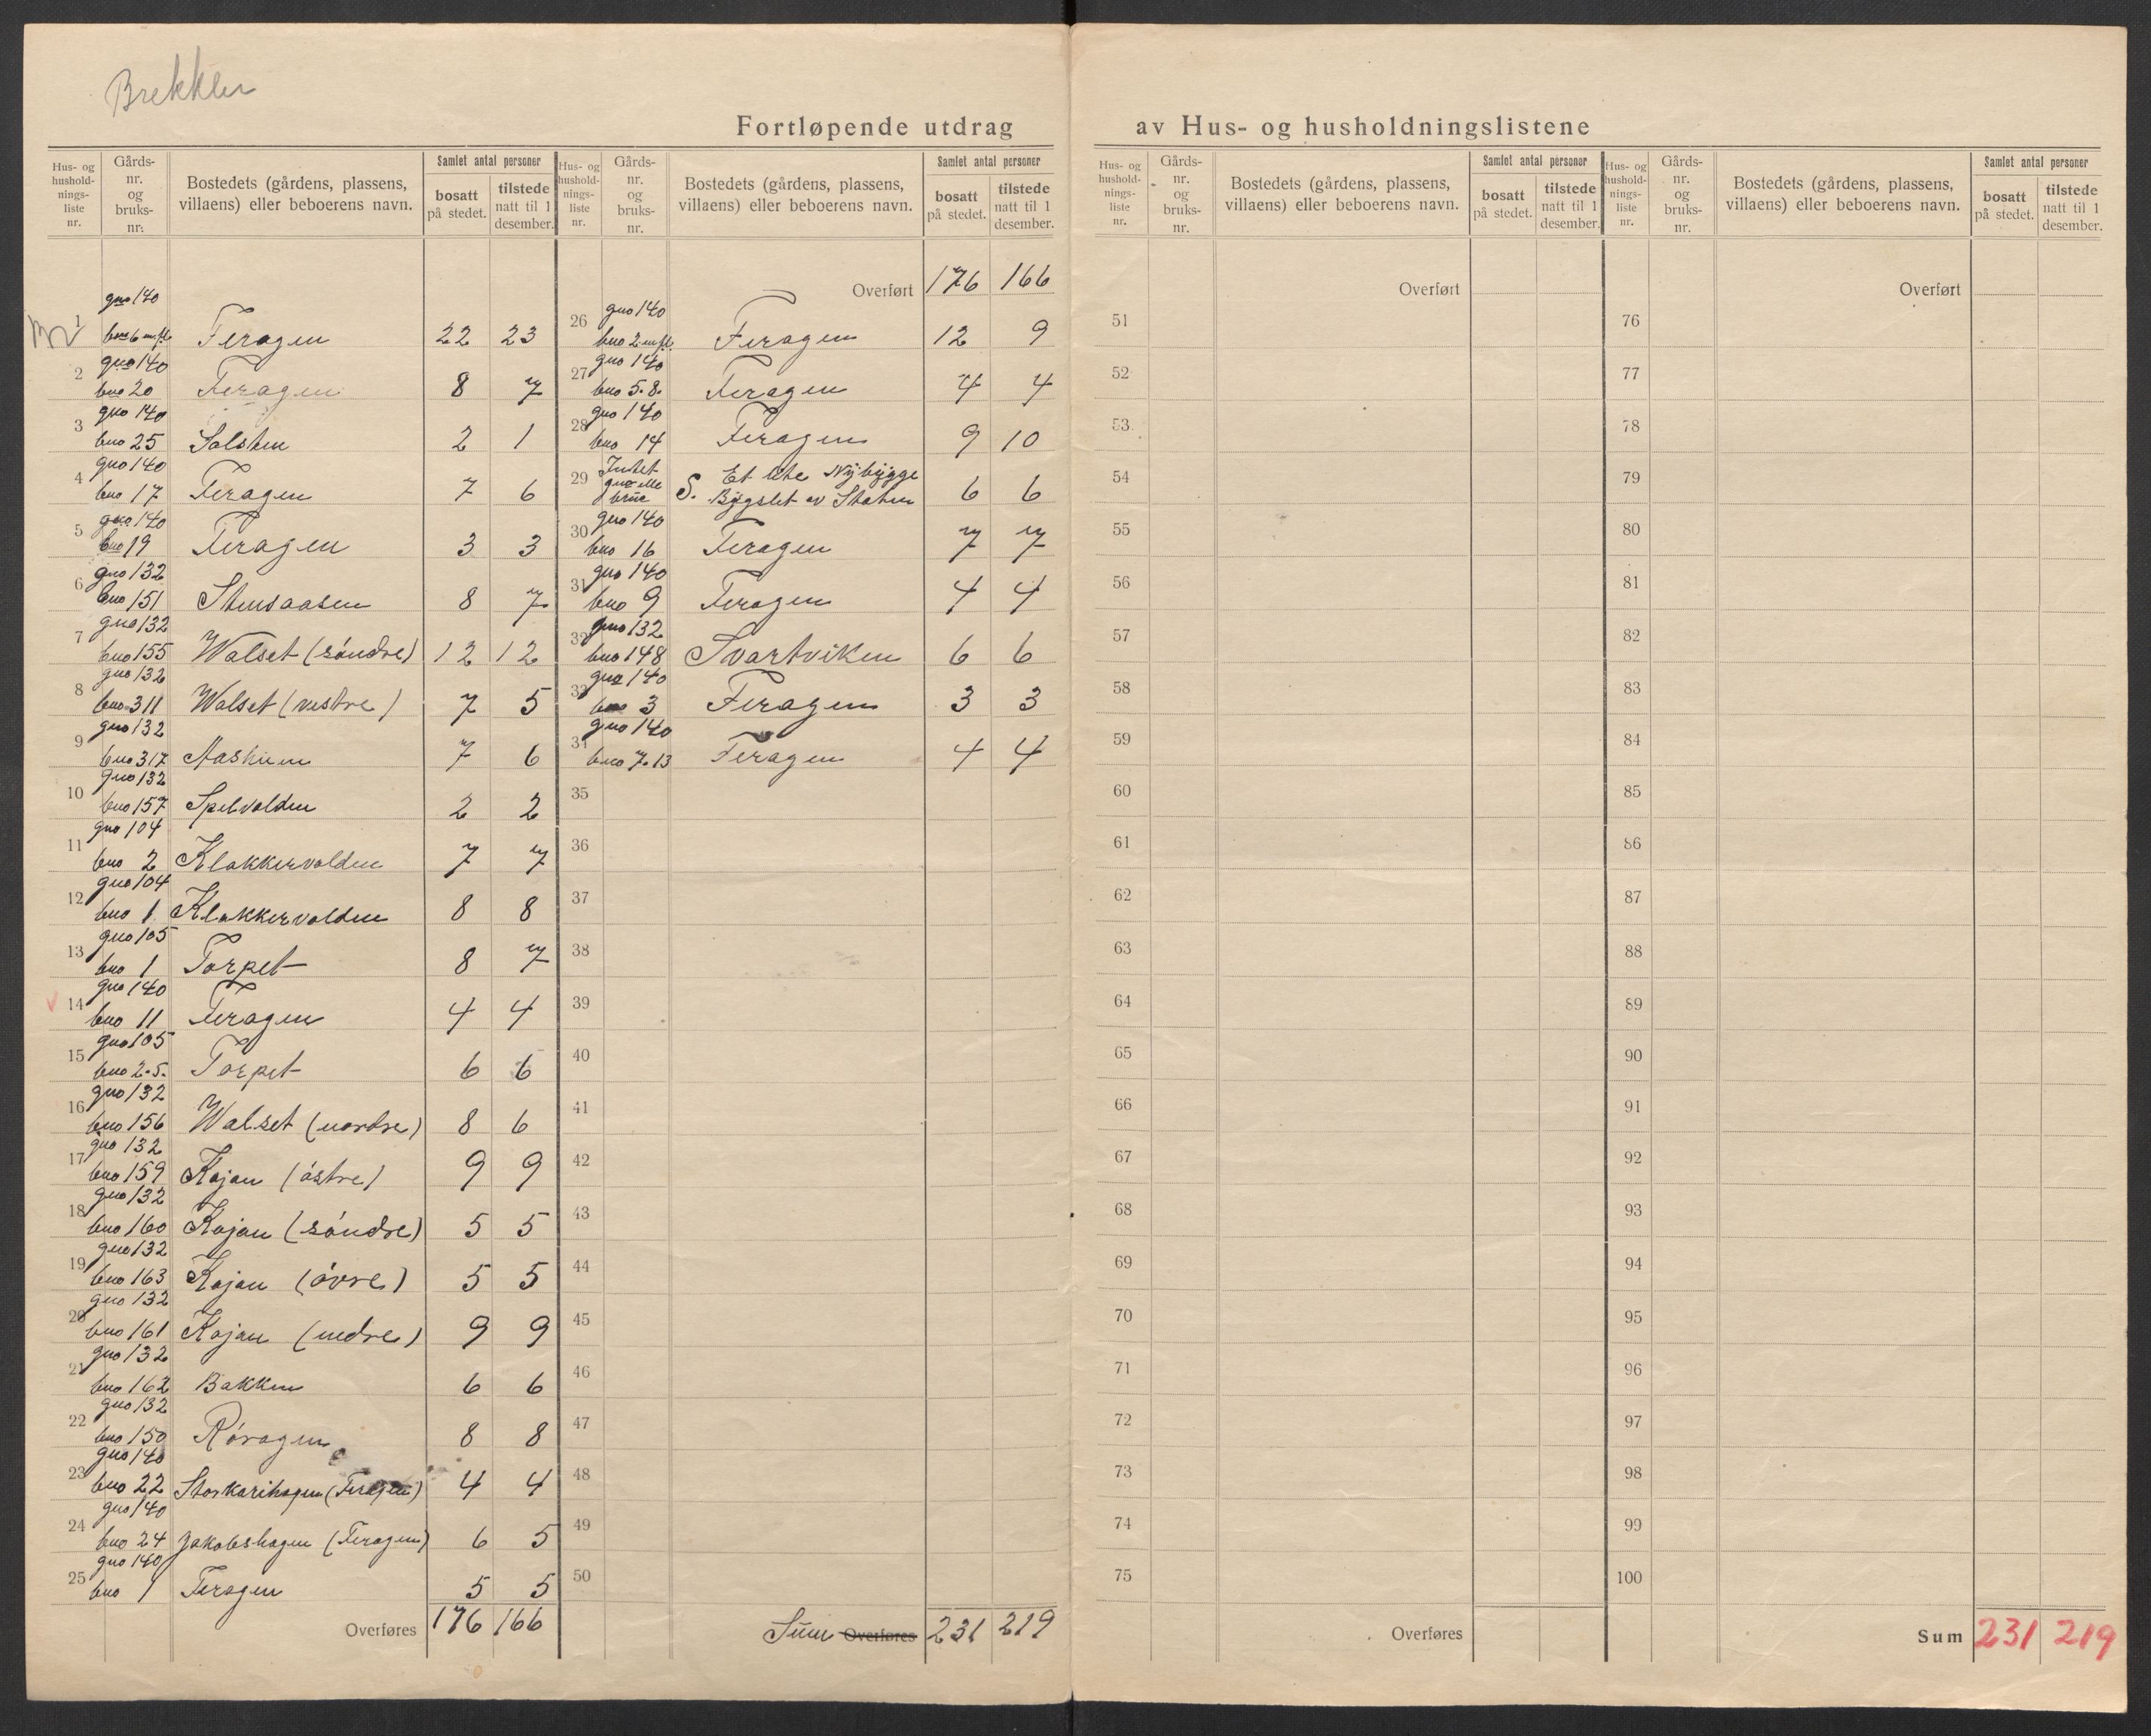 Brekklen
Fortløpende utdrag av Hus- og husholdningslistene
Hus- og husholdningsliste nr. | Gårds-nr. og bruks-nr. | Bostedets (gårdens, plassens, villaens) eller beboerens navn. | Samlet antal personer bosatt på stedet. | tilstede natt til 1 desember.
1 gno 140 bno 6 m.fl. Feragen 22 23
2 gno 140 bno 20 Feragen 8 7
3 gno 140 bno 25 Solsten 2 1
4 gno 140 bno 17 Feragen 7 6
5 gno 140 bno 19 Feragen 3 3
6 gno 132 bno 151 Stensaasen 8 7
7 gno 132 bno 155 Walset (söndre) 12 12
8 gno 132 bno 311 Walset (vestre) 7 5
9 gno 132 bno 317 Aasheim 7 6
10 gno 132 bno 157 Spelvolden 2 2
11 gno 104 bno 2 Klokkervolden 7 7
12 gno 104 bno 1 Klokkervolden 8 8
13 gno 105 bno 1 Torpet 8 7
14 gno 140 bno 11 Feragen 4 4
15 gno 105 bno 2-5. Torpet 6 6
16 gno 132 bno 156 Walset (nordre) 8 6
17 gno 132 bno 159 Kojan (östre) 9 9
18 gno 132 bno 160 Kojan (söndre) 5 5
19 gno 132 bno 163 Kojan (övre) 5 5
20 gno 132 bno 161 Kojan (nedre) 9 9
21 gno 132 bno 162 Bakken 6 6
22 gno 132 bno 150 Röragen 8 8
23 gno 140 bno 22 Storkarihagen (Feragen) 4 4
24 gno 140 bno 24 Jakobshagen (Feragen) 6 5
25 gno 140 bno 1 Feragen 5 5
Overføres 176 166
Hus- og husholdningsliste nr. | Gårds-nr. og bruks-nr. | Bostedets (gårdens, plassens, villaens) eller beboerens navn. | Samlet antal personer bosatt på stedet. | tilstede natt til 1 desember.
Overført 176 166
26 gno 140 bno 2 m.fl. Feragen 12 9
27 gno 140 bno 5.8. Feragen 4 4
28 gno 140 bno 14 Feragen 9 10
29 Intet gno elle bruc S. Et lite Nybygge Bygslet av Staten 6 6
30 gno 140 bno 16 Feragen 7 7
31 gno 140 bno 9 Feragen 4 4
32 gno 132 bno 148 Svartviken 6 6
33 gno 140 bno 3 Feragen 3 3
34 gno 140 bno 7.13 Feragen 4 4
35
36
37
38
39
40
41
42
43
44
45
46
47
48
49
50
Sum Overføres 231 219
Hus- og husholdningsliste nr. | Gårds-nr. og bruks-nr. | Bostedets (gårdens, plassens, villaens) eller beboerens navn. | Samlet antal personer bosatt på stedet. | tilstede natt til 1 desember.
Overført
51
52
53
54
55
56
57
58
59
60
61
62
63
64
65
66
67
68
69
70
71
72
73
74
75
Overføres
Hus- og husholdningsliste nr. | Gårds-nr. og bruks-nr. | Bostedets (gårdens, plassens, villaens) eller beboerens navn. | Samlet antal personer bosatt på stedet. | tilstede natt til 1 desember.
Overført
76
77
78
79
80
81
82
83
84
85
86
87
88
89
90
91
92
93
94
95
96
97
98
99
100
Sum 231 219